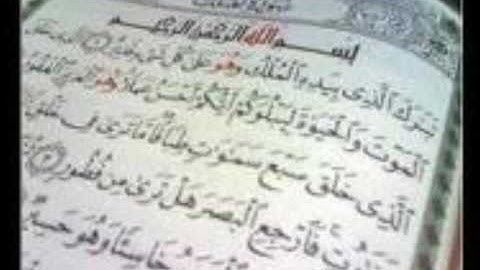 بِسْمِ اللَّهِ الرَّحْمَٰنِ الرَّحِيمِ
تَبَٰرَكَ الَّذِى بِيَدِهِ الْمُلْكُ وَهُوَ عَلَىٰ كُلِّ شَىْءٍ قَدِيرٌ ۝ الَّذِى خَلَقَ
الْمَوْتَ وَالْحَيَوٰةَ لِيَبْلُوَكُمْ أَيُّكُمْ أَحْسَنُ عَمَلًا وَهُوَ الْعَزِيزُ الْغَفُورُ
الَّذِى خَلَقَ سَبْعَ سَمَٰوَٰتٍ طِبَاقًا مَّا تَرَىٰ فِى خَلْقِ
فَارْجِعِ الْبَصَرَ هَلْ تَرَىٰ مِن فُطُورٍ ۝
خَاسِئًا وَهُوَ حَسِيرٌ